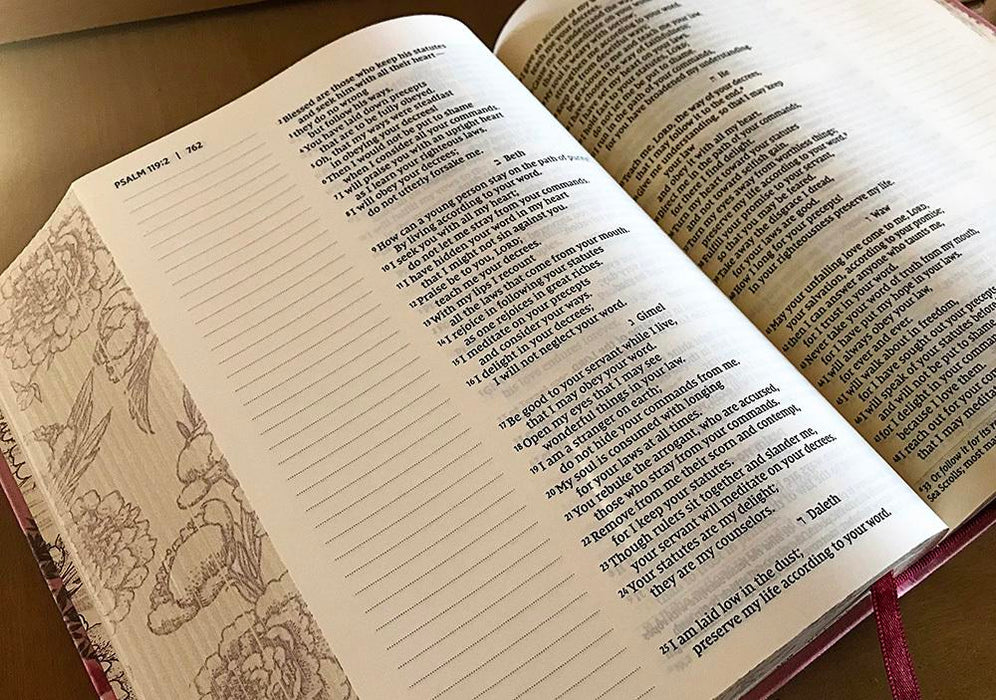 PSALM 119:2 | 762
2 Blessed are those who keep his statutes
and seek him with all their heart—
3 they do no wrong
but follow his ways.
4 You have laid down precepts
that are to be fully obeyed.
5 Oh, that my ways were steadfast
in obeying your decrees!
6 Then I would not be put to shame
when I consider all your commands.
7 I will praise you with an upright heart
as I learn your righteous laws.
8 I will obey your decrees;
do not utterly forsake me.
ב Beth
9 How can a young person stay on the path of purity?
By living according to your word.
10 I seek you with all my heart;
do not let me stray from your commands.
11 I have hidden your word in my heart
that I might not sin against you.
12 Praise be to you, LORD;
teach me your decrees.
13 With my lips I recount
all the laws that come from your mouth.
14 I rejoice in following your statutes
as one rejoices in great riches.
15 I meditate on your precepts
and consider your ways.
16 I delight in your decrees;
I will not neglect your word.
ג Gimel
17 Be good to your servant while I live,
that I may obey your word.
18 Open my eyes that I may see
wonderful things in your law.
19 I am a stranger on earth;
do not hide your commands from me.
20 My soul is consumed with longing
for your laws at all times.
21 You rebuke the arrogant, who are accursed,
those who stray from your commands.
22 Remove from me their scorn and contempt,
for I keep your statutes.
23 Though rulers sit together and slander me,
your servant will meditate on your decrees.
24 Your statutes are my delight;
they are my counselors.
ד Daleth
25 I am laid low in the dust;
preserve my life according to your word.
for you have broadened my understanding.
ה He
the way of your decrees,
that I may follow it to the end.
understanding, so that I may keep
with all my heart.
your commands,
for there I find delight.
your statutes
and not toward selfish gain.
away from worthless things;
my life according to your word.
to your servant,
so that you may be feared.
Take away the disgrace I dread,
for your laws are good.
How I long for your precepts!
In your righteousness preserve my life.
ו Waw
May your unfailing love come to me, LORD,
your salvation, according to your promise;
then I can answer anyone who taunts me,
for I trust in your word.
Never take your word of truth from my mouth,
for I have put my hope in your laws.
I will always obey your law,
for ever and ever.
I will walk about in freedom,
for I have sought out your precepts.
I will speak of your statutes before
and will not be put to shame
for I delight in your commands
because I love them.
I reach out for your commands
that I may
33 Or follow it for its
Sea Scrolls; most